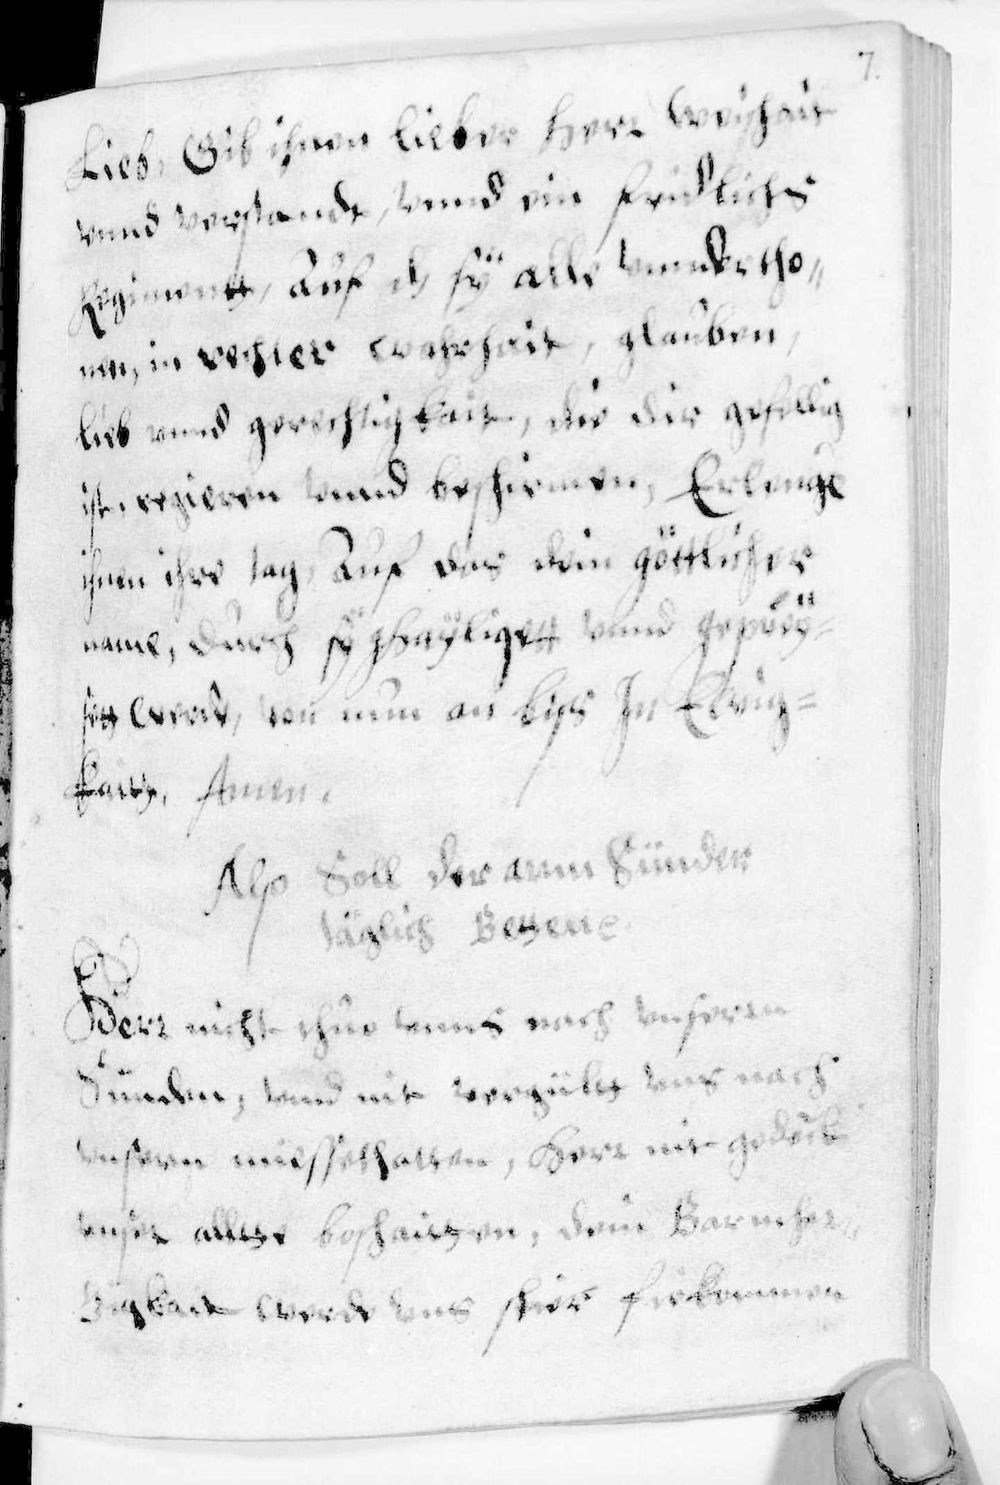 7.
Lieb, Gib ihnen lieber Herr Weyhait
vnnd verstandt, vnnd ein fridlichs
Regiment, auf dz sÿ alle vnndertho„
nen, in rechter wahrhait, glauben,
lieb vnnd gerechtigkait, die dir gefellig
ist, regieren vnnd beschirmen, Erlenge
ihnen ihre tag, Auf das dein göttlicher
name, durch sÿ gehaÿligett vnnd gepreÿ=
sett werd, von nun an biss In Ewig=
kaitt, Amen.
Also Soll der arm Sünder
täglich Bettenn
Herr nicht thue vnns nach vnseren
Sünden, vnnd nit vergülte vns nach
vnsern missethatten, Herr nit gedenk
vnser alltte boshaitten, dein Barmher„
zigkait werde vns schier firkommen